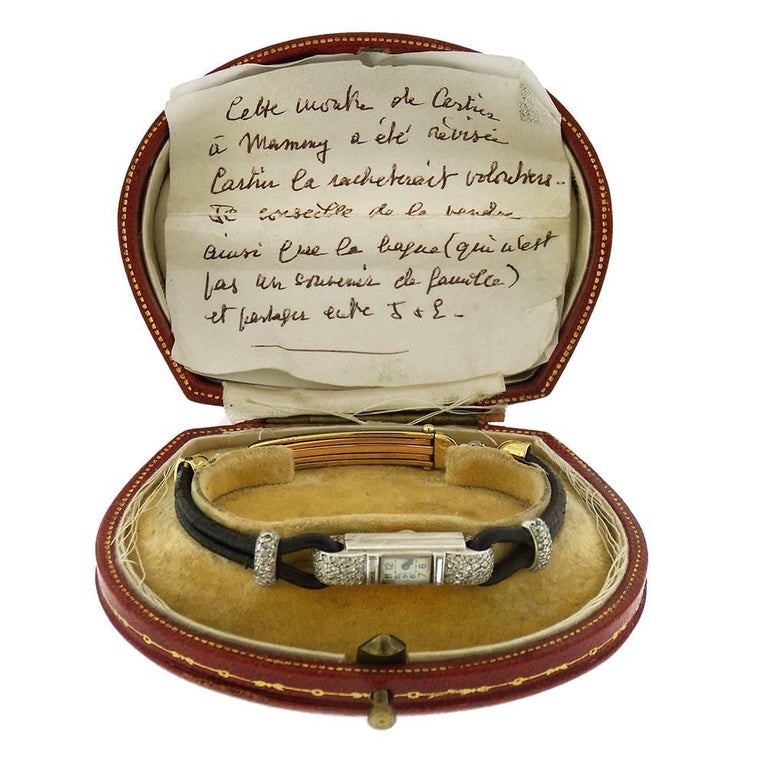 Cette montre de Cartier
à Mammy a été révisée
Cartier la racheterait volontiers -
Je conseille de la vendre
ainsi que la bague (qui n'est
pas un souvenir de famille)
et partager entre J & E -
12
6